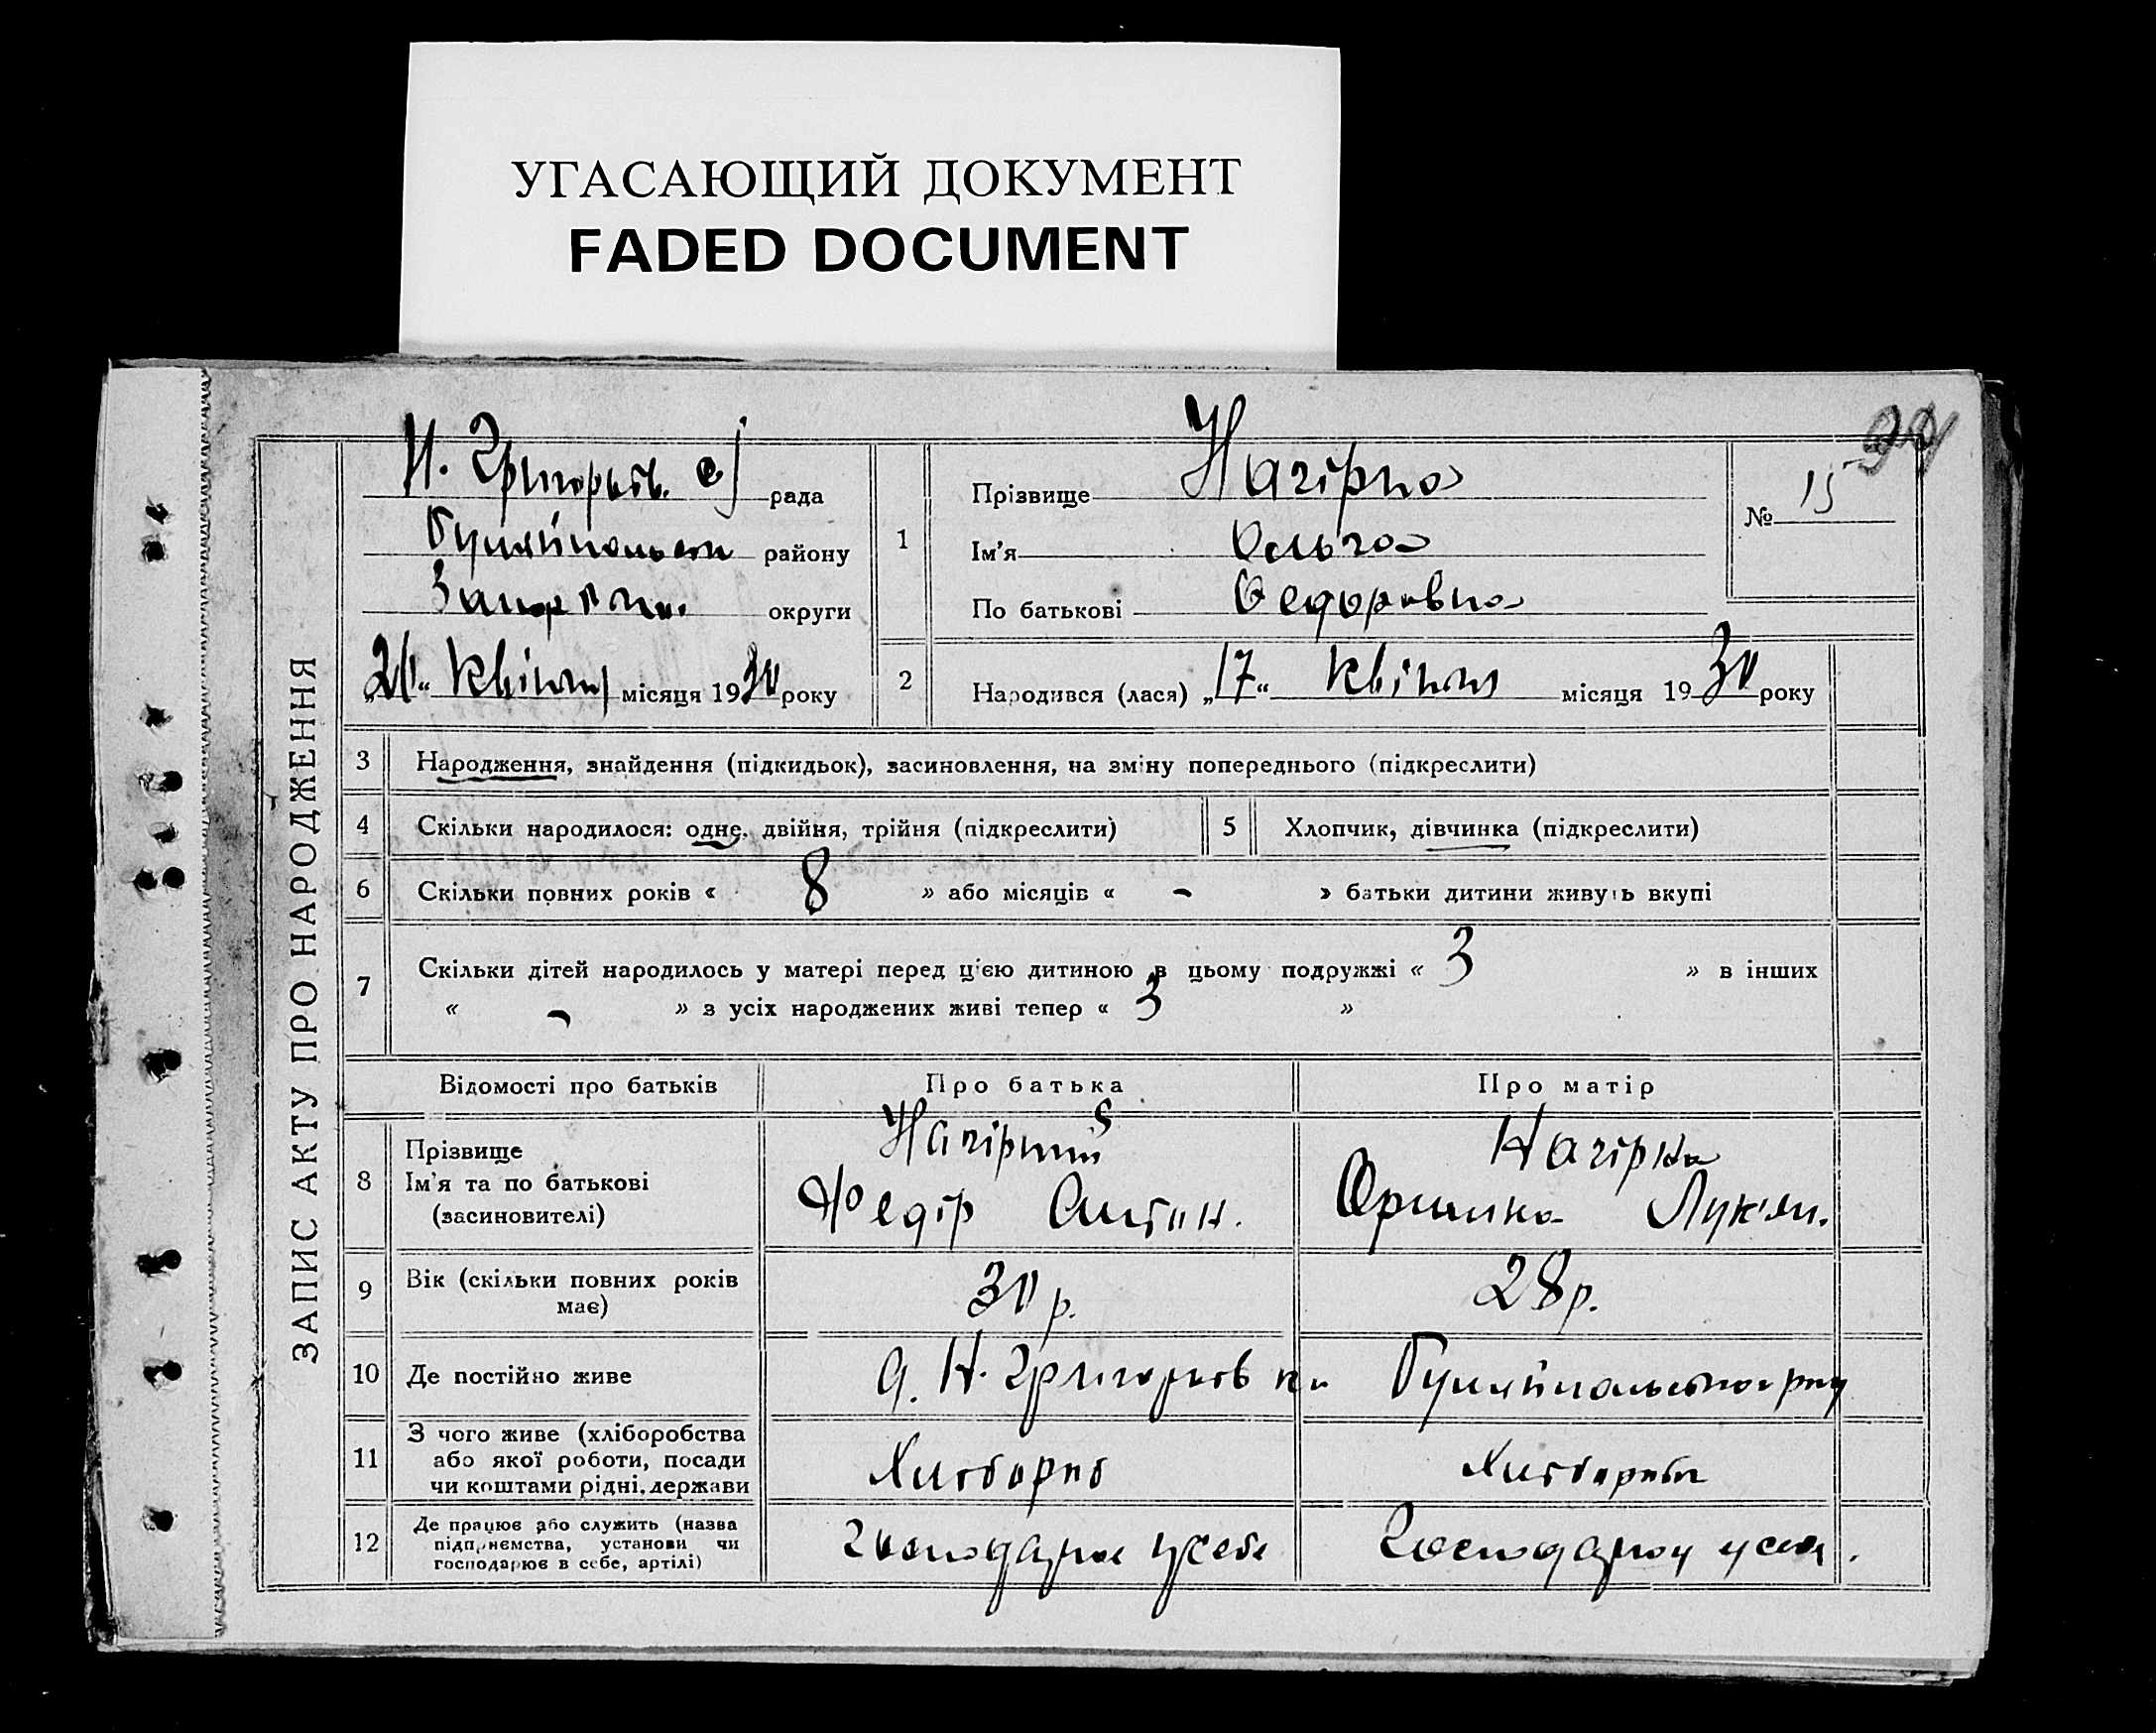 УГАСАЮЩИЙ ДОКУМЕНТ
FADED DOCUMENT
ЗАПИС АКТУ ПРО НАРОДЖЕННЯ
Н. Григорків. с/ рада
Гуляйпольськ району
Запоріжж. округи
„ “ квітня місяця 1930 року
1
Прізвище Нагірна
Ім'я Ольга
По батькові Федоровна
№ 15
2
Народився (лася) „17“ квітня місяця 1930 року
3 Народження, знайдення (підкидьок), засиновлення, на зміну попереднього (підкреслити)
4 Скільки народилося: одне, двійня, трійня (підкреслити)
5 Хлопчик, дівчинка (підкреслити)
6 Скільки повних років « 8 » або місяців « - » батьки дитини живуть вкупі
7 Скільки дітей народилось у матері перед цією дитиною в цьому подружжі « 3 » в інших
« - » з усіх народжених живі тепер « 3 »
Відомості про батьків Про батька Про матір
8
Прізвище Нагірний Нагірна
Ім'я та по батькові Федір Антон. Оришка Лук'ян.
(засиновителі)
9 Вік (скільки повних років має) 30 р. 28 р.
10 Де постійно живе Н. Григорківка Гуляйпольського р-ну
11 З чого живе (хліборобства
або якої роботи, посади
чи коштами рідні, держави Хлібороб Хлібороб
12 Де працює або служить (назва
підприємства, установи чи
господарює в себе, артілі) господарює у себе Господарює у себе.